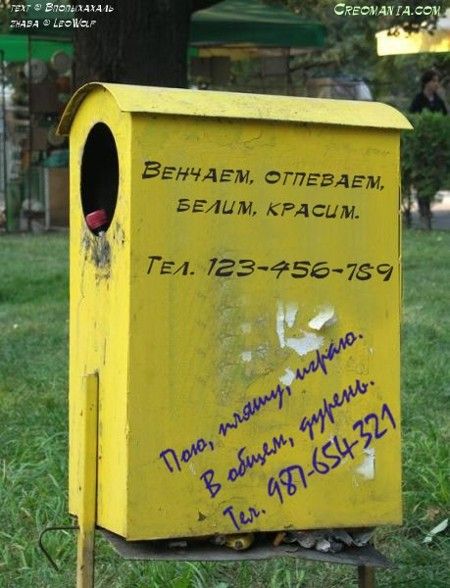 техт © Впопыхахаль
zhaba © LeoWolf
Creomania.com
Венчаем, отпеваем,
белим, красим.
Тел. 123-456-789
Пою, пляшу, играю.
В общем, дурень.
Тел. 987-654-321